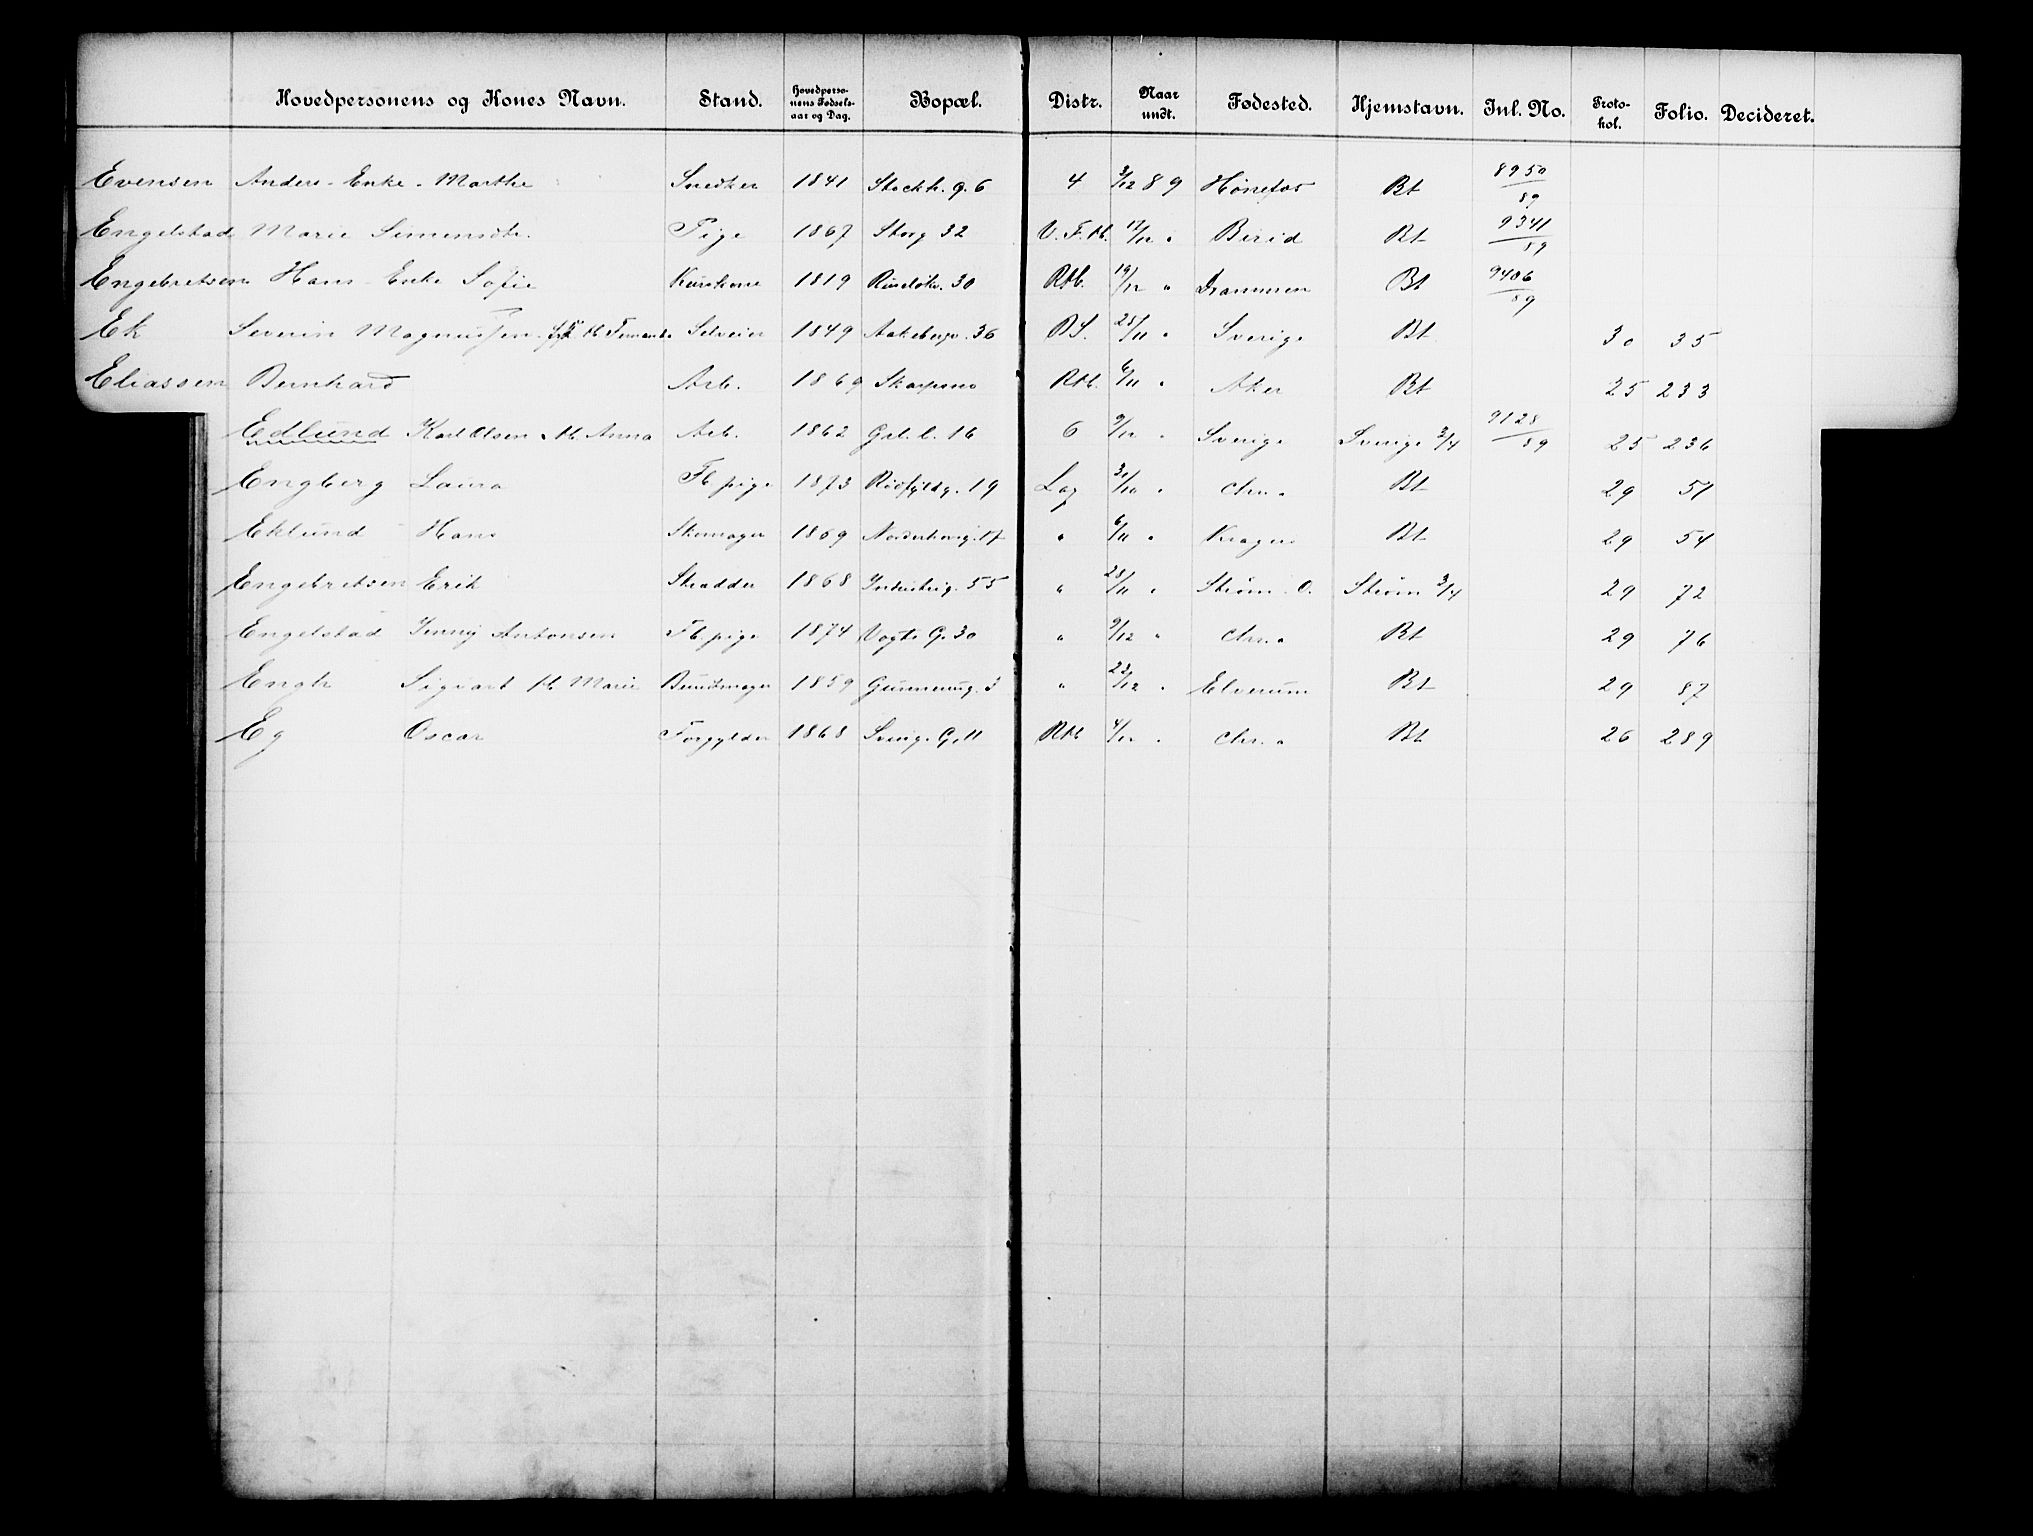 Hovedpersonens og Kones Navn. Stand. Hovedpersonens Fødselsaar og Dag. Bopæl. Distr. Naar undt. Fødested. Hjemstavn. Inl. No. Protokol. Folio. Decideret.
Evensen Anders - Enke - Marthe Snedker 1841 Stockh. g. 6 4 3/12 89 Hønefos Bt 8950/89
Engelstad Marie Simensdtr. Pige 1867 Storg 32 V.F.Ab. 17/12 " Birid Bt 9341/89
Engebretsen Hans - Enke Sofie 1819 30 Rtb. 19/12 " Drammen Bt 9406/89
Ek Severin Magnussen 1849 Aakebergv. 36 BS. 25/11 " Sverige Bt 30 35
Eliassen Bernhard Arb. 1869 Skarpsno Rtb. 6/11 " Aker Bt 25 233
Edlund Karl Olsen M. Anna Arb. 1862 Grl. l. 16 6 9/12 " Sverige Sverige 3/4 9128/89 25 236
Engberg Laura Fb pige 1873 19 Lag 31/10 " Chr.a Bt 29 51
Eklund Hans Skomager 1869 Nordenhoug. 17 " 6/11 " Kragerø Bt 29 54
Engebretsen Erik Skrædder 1868 Industrig. 55 " 28/11 " Strøm O. Strøm 3/4 29 72
Engelstad Jenny Antonsen Fb. pige 1874 Vogts G. 30 " 9/12 " Chr.a Bt 29 76
Engh Sigvart M. Marie Buntmager 1859 Gunnerusg. 3 " 23/12 " Elverum Bt 29 87
Eg Oscar Forgylder 1868 Sverig. G. 11 Rtb 4/12 " Chr.a Bt 26 289